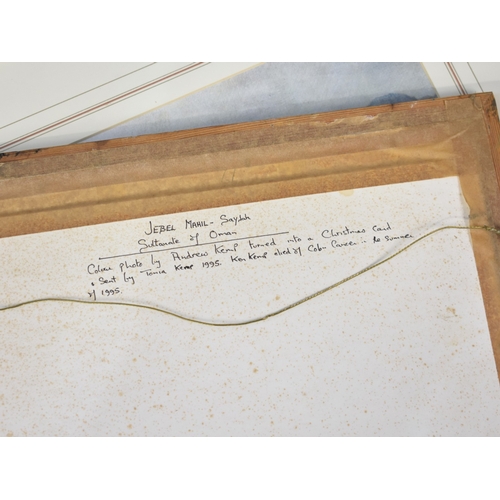 JEBEL MAHIL - Saydah
Sultanate of Oman
Colour photo by Andrew Kemp turned into a Christmas Card
& sent by Tonia Kemp 1995. Ken Kemp died of Colon Cancer in the Summer
of 1995.